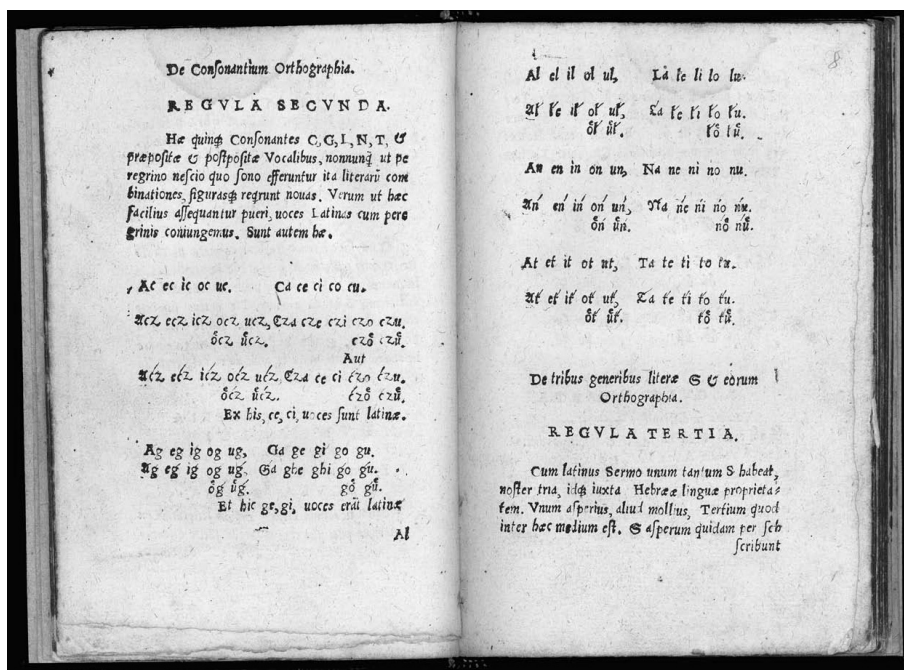 De Conſonantium Orthographia.
REGVLA SECVNDA.
Hæ quinq́; Conſonantes C, G, L, N, T, &
præpoſitæ & poſtpoſitæ Vocalibus, nonnunq̃ ut pe
regrino neſcio quo ſono efferuntur ita literarũ com
binationes, figurasq́; reqrunt nouas. Verum ut hæc
facilius aſſequantur pueri, uoces Latinas cum pere
grinis coniungemus. Sunt autem hæ.
Ac ec ic oc uc. Ca ce ci co cu.
Acz ecz icz ocz ucz, Cza cze czi czo czu.
o̊cz ůcz. czo̊ czů.
Aut
Aćz ećz ićz oćz ućz, Cza ce ci ćzo ćzu.
o̊ćz ůćz. ćzo̊ ćzů.
Ex his, ce, ci, uoces ſunt latinæ.
Ag eg ig og ug, Ga ge gi go gu.
Ag eg ig og ug, Ga ghe ghi go gu.
o̊g ůg. go̊ gů.
Et hic ge, gi, uoces erãt latinæ
Al
8
Al el il ol ul, La le li lo lu.
o̊ ů.
An en in on un, Na ne ni no nu.
Ań eń iń oń uń, Ńa ńe ńi ńo ńu.
o̊ń ůń. ńo̊ ńů.
At et it ot ut, Ta te ti to tu.
De tribus generibus literæ S & eorum
Orthographia.
REGVLA TERTIA.
Cum latinus Sermo unum tantum S habeat,
noſter tria, idq́; iuxta Hebrææ linguæ proprieta⸗
tem. Vnum aſperius, aliud mollius, Tertium quod
inter hæc medium eſt. S aſperum quidam per ſch
ſcribunt